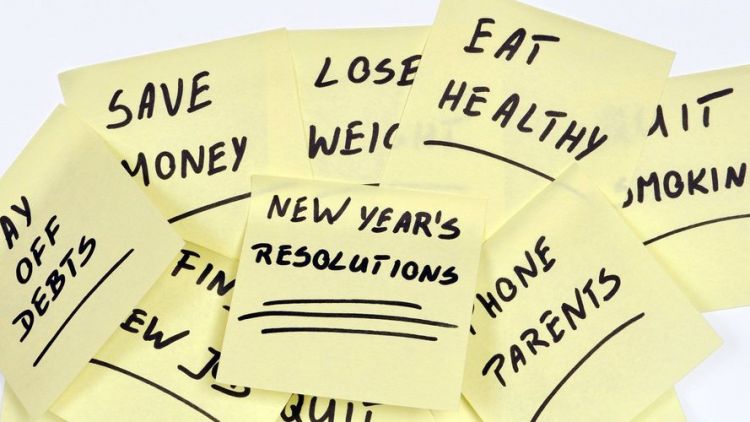 SAVE
MONEY
LOSE
WEIG
EAT
HEALTHY
UIT
SMOKIN
AY
OFF
DEBTS
FIN
EW JOB
NEW YEAR'S
RESOLUTIONS
PHONE
PARENTS
QUIT